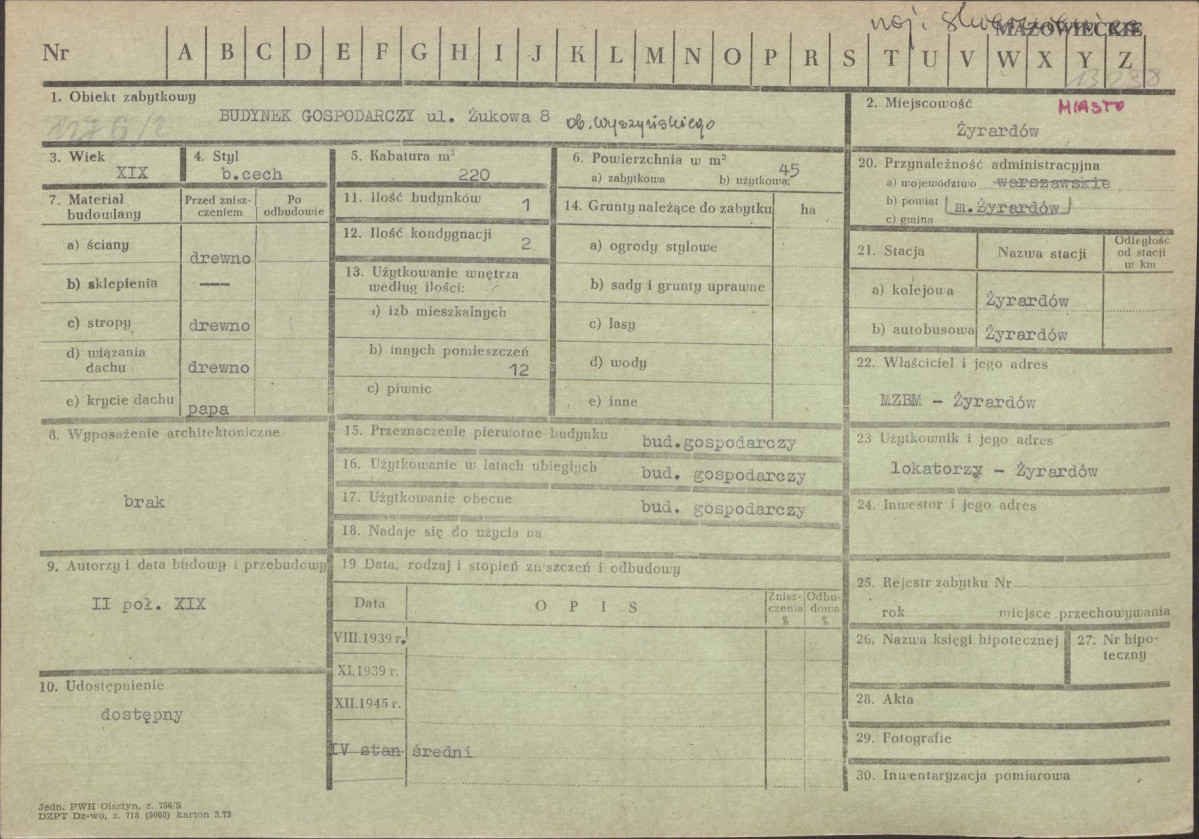 woj.
MAZOWIECKIE
Nr A B C D E F G H I J K L M N O P R S T U V W X Y Z
13238
1. Obiekt zabytkowy
BUDYNEK GOSPODARCZY ul. Żukowa 8 ob. Wyszyńskiego
1276/2
2. Miejscowość MIASTO
Żyrardów
3. Wiek
XIX
4. Styl
b.cech
5. Kabatura m³
220
6. Powierzchnia w m²
a) zabytkowa b) użytkowa: 45
20. Przynależność administracyjna
a) województwo warszawskie
b) powiat m. Żyrardów
c) gmina
7. Materiał budowlany
Przed zniszczeniem
Po odbudowie
a) ściany drewno
b) sklepienia ---
c) stropy drewno
d) wiązania dachu drewno
e) krycie dachu papa
11. Ilość budynków 1
12. Ilość kondygnacji 2
13. Użytkowanie wnętrza
według ilości:
a) izb mieszkalnych
b) innych pomieszczeń
12
c) piwnic
14. Grunty należące do zabytku ha
a) ogrody stylowe
b) sady i grunty uprawne
c) lasy
d) wody
e) inne
21. Stacja Nazwa stacji Odległość od stacji w km
a) kolejowa Żyrardów
b) autobusowa Żyrardów
22. Właściciel i jego adres
MZBM - Żyrardów
23 Użytkownik i jego adres
lokatorzy - Żyrardów
24. Inwestor i jego adres
8. Wyposażenie architektoniczne
brak
15. Przeznaczenie pierwotne budynku bud.gospodarczy
16. Użytkowanie w latach ubiegłych bud. gospodarczy
17. Użytkowanie obecne bud. gospodarczy
18. Nadaje się do użycia na
9. Autorzy i data budowy i przebudowy
II poł. XIX
10. Udostępnienie
dostępny
19 Data, rodzaj i stopień zniszczeń i odbudowy
Data OPIS Zniszczenia % Odbudowa %
VIII.1939 r.
XI.1939 r.
XII.1945 r.
IV stan średni
25. Rejestr zabytku Nr
rok miejsce przechowywania
26. Nazwa księgi hipotecznej
27. Nr hipoteczny
28. Akta
29. Fotografie
30. Inwentaryzacja pomiarowa
Jedn. PWH Olsztyn, z. 756/S
DZPT Dz-wo, z. 718 (5000) karton 3.73